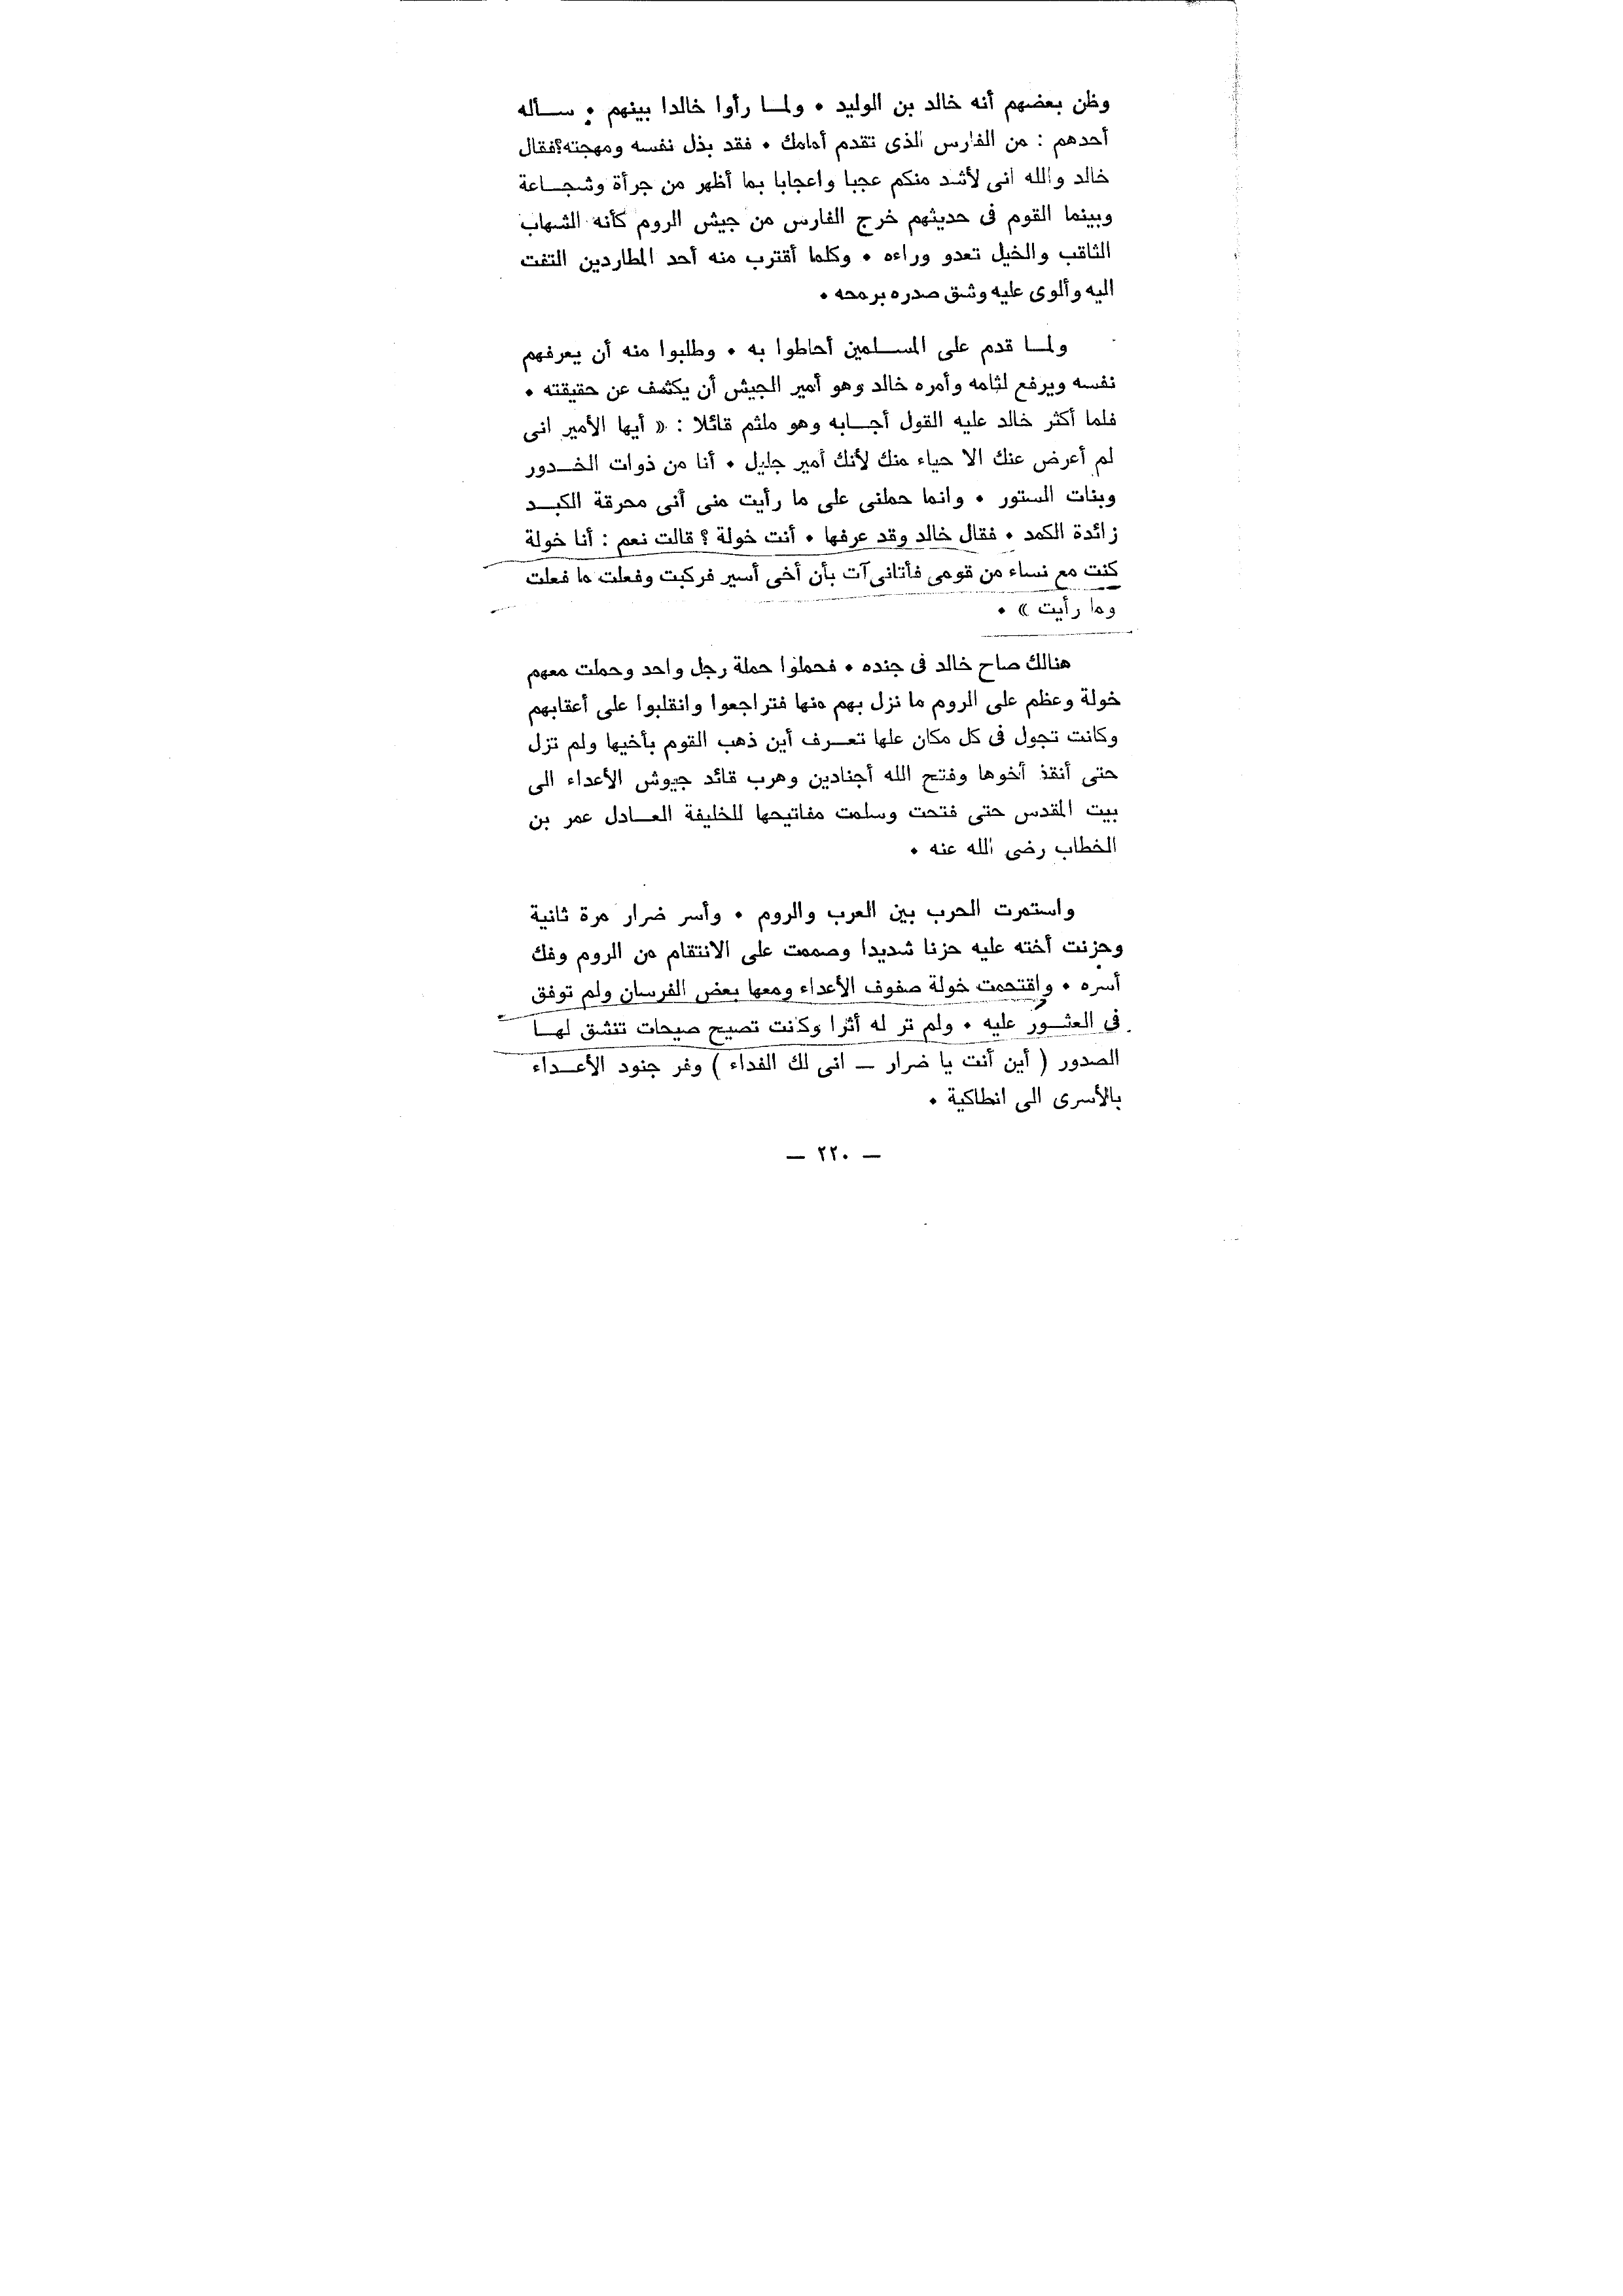 وظن بعضهم أنه خالد بن الوليد . ولما رأوا خالدا بينهم . سأله
أحدهم : من الفارس الذى تقدم أمامك . فقد بذل نفسه ومهجته؟فقال
خالد والله انى لأشد منكم عجبا واعجابا بما أظهر من جرأة وشجاعة
وبينما القوم فى حديثهم خرج الفارس من جيش الروم كأنه الشهاب
الثاقب والخيل تعدو وراءه . وكلما أقترب منه أحد المطاردين التفت
اليه وألوى عليه وشق صدره برمحه .
ولما قدم على المسلمين أحاطوا به . وطلبوا منه أن يعرفهم
نفسه ويرفع لثامه وأمره خالد وهو أمير الجيش أن يكشف عن حقيقته .
فلما أكثر خالد عليه القول أجابه وهو ملثم قائلا : « أيها الأمير انى
لم أعرض عنك الا حياء منك لأنك أمير جليل . أنا من ذوات الخدور
وبنات الستور . وانما حملنى على ما رأيت منى أنى محرقة الكبد
زائدة الكمد . فقال خالد وقد عرفها . أنت خولة ؟ قالت نعم : أنا خولة
كنت مع نساء من قومى فأتانى آت بأن أخى أسير فركبت وفعلت ما فعلت
وما رأيت » .
هنالك صاح خالد فى جنده . فحملوا حملة رجل واحد وحملت معهم
خولة وعظم على الروم ما نزل بهم منها فتراجعوا وانقلبوا على أعقابهم
وكانت تجول فى كل مكان علها تعرف أين ذهب القوم بأخيها ولم تزل
حتى أنقذ أخوها وفتح الله أجنادين وهرب قائد جيوش الأعداء الى
بيت المقدس حتى فتحت وسلمت مفاتيحها للخليفة العادل عمر بن
الخطاب رضى الله عنه .
واستمرت الحرب بين العرب والروم . وأسر ضرار مرة ثانية
وحزنت أخته عليه حزنا شديدا وصممت على الانتقام من الروم وفك
أسره . واقتحمت خولة صفوف الأعداء ومعها بعض الفرسان ولم توفق
فى العثور عليه . ولم تر له أثرا وكانت تصيح صيحات تنشق لها
الصدور ( أين أنت يا ضرار — انى لك الفداء ) وفر جنود الأعداء
بالأسرى الى انطاكية .
— ٢٢٠ —